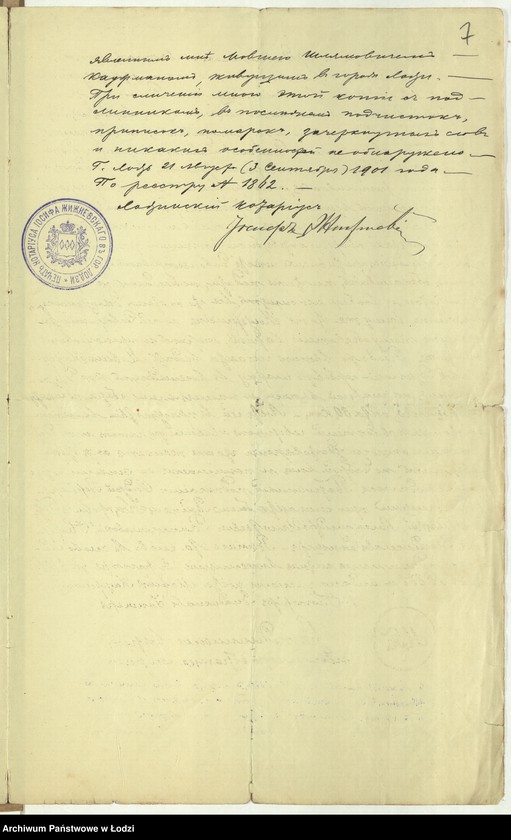 7
явленным мнѣ Мовшею Шлямовичемъ
Кауфманомъ, живущимъ въ городѣ Лодзи. —
При сличеніи мною этой копіи съ под-
линникомъ, въ послѣднемъ подчистокъ,
приписокъ, помарокъ, зачеркнутыхъ словъ
и никакихъ особенностей не обнаружено —
Г. Лодзь 21 Августа (3 Сентября) 1901 года. —
По реестру № 1862. —
Лодзинскій Нотаріусъ
Іосифъ Жижневскій
ПЕЧАТЬ НОТАРІУСА ІОСИФА ЖИЖНЕВСКАГО ВЪ ГОР. ЛОДЗИ
Archiwum Państwowe w Łodzi